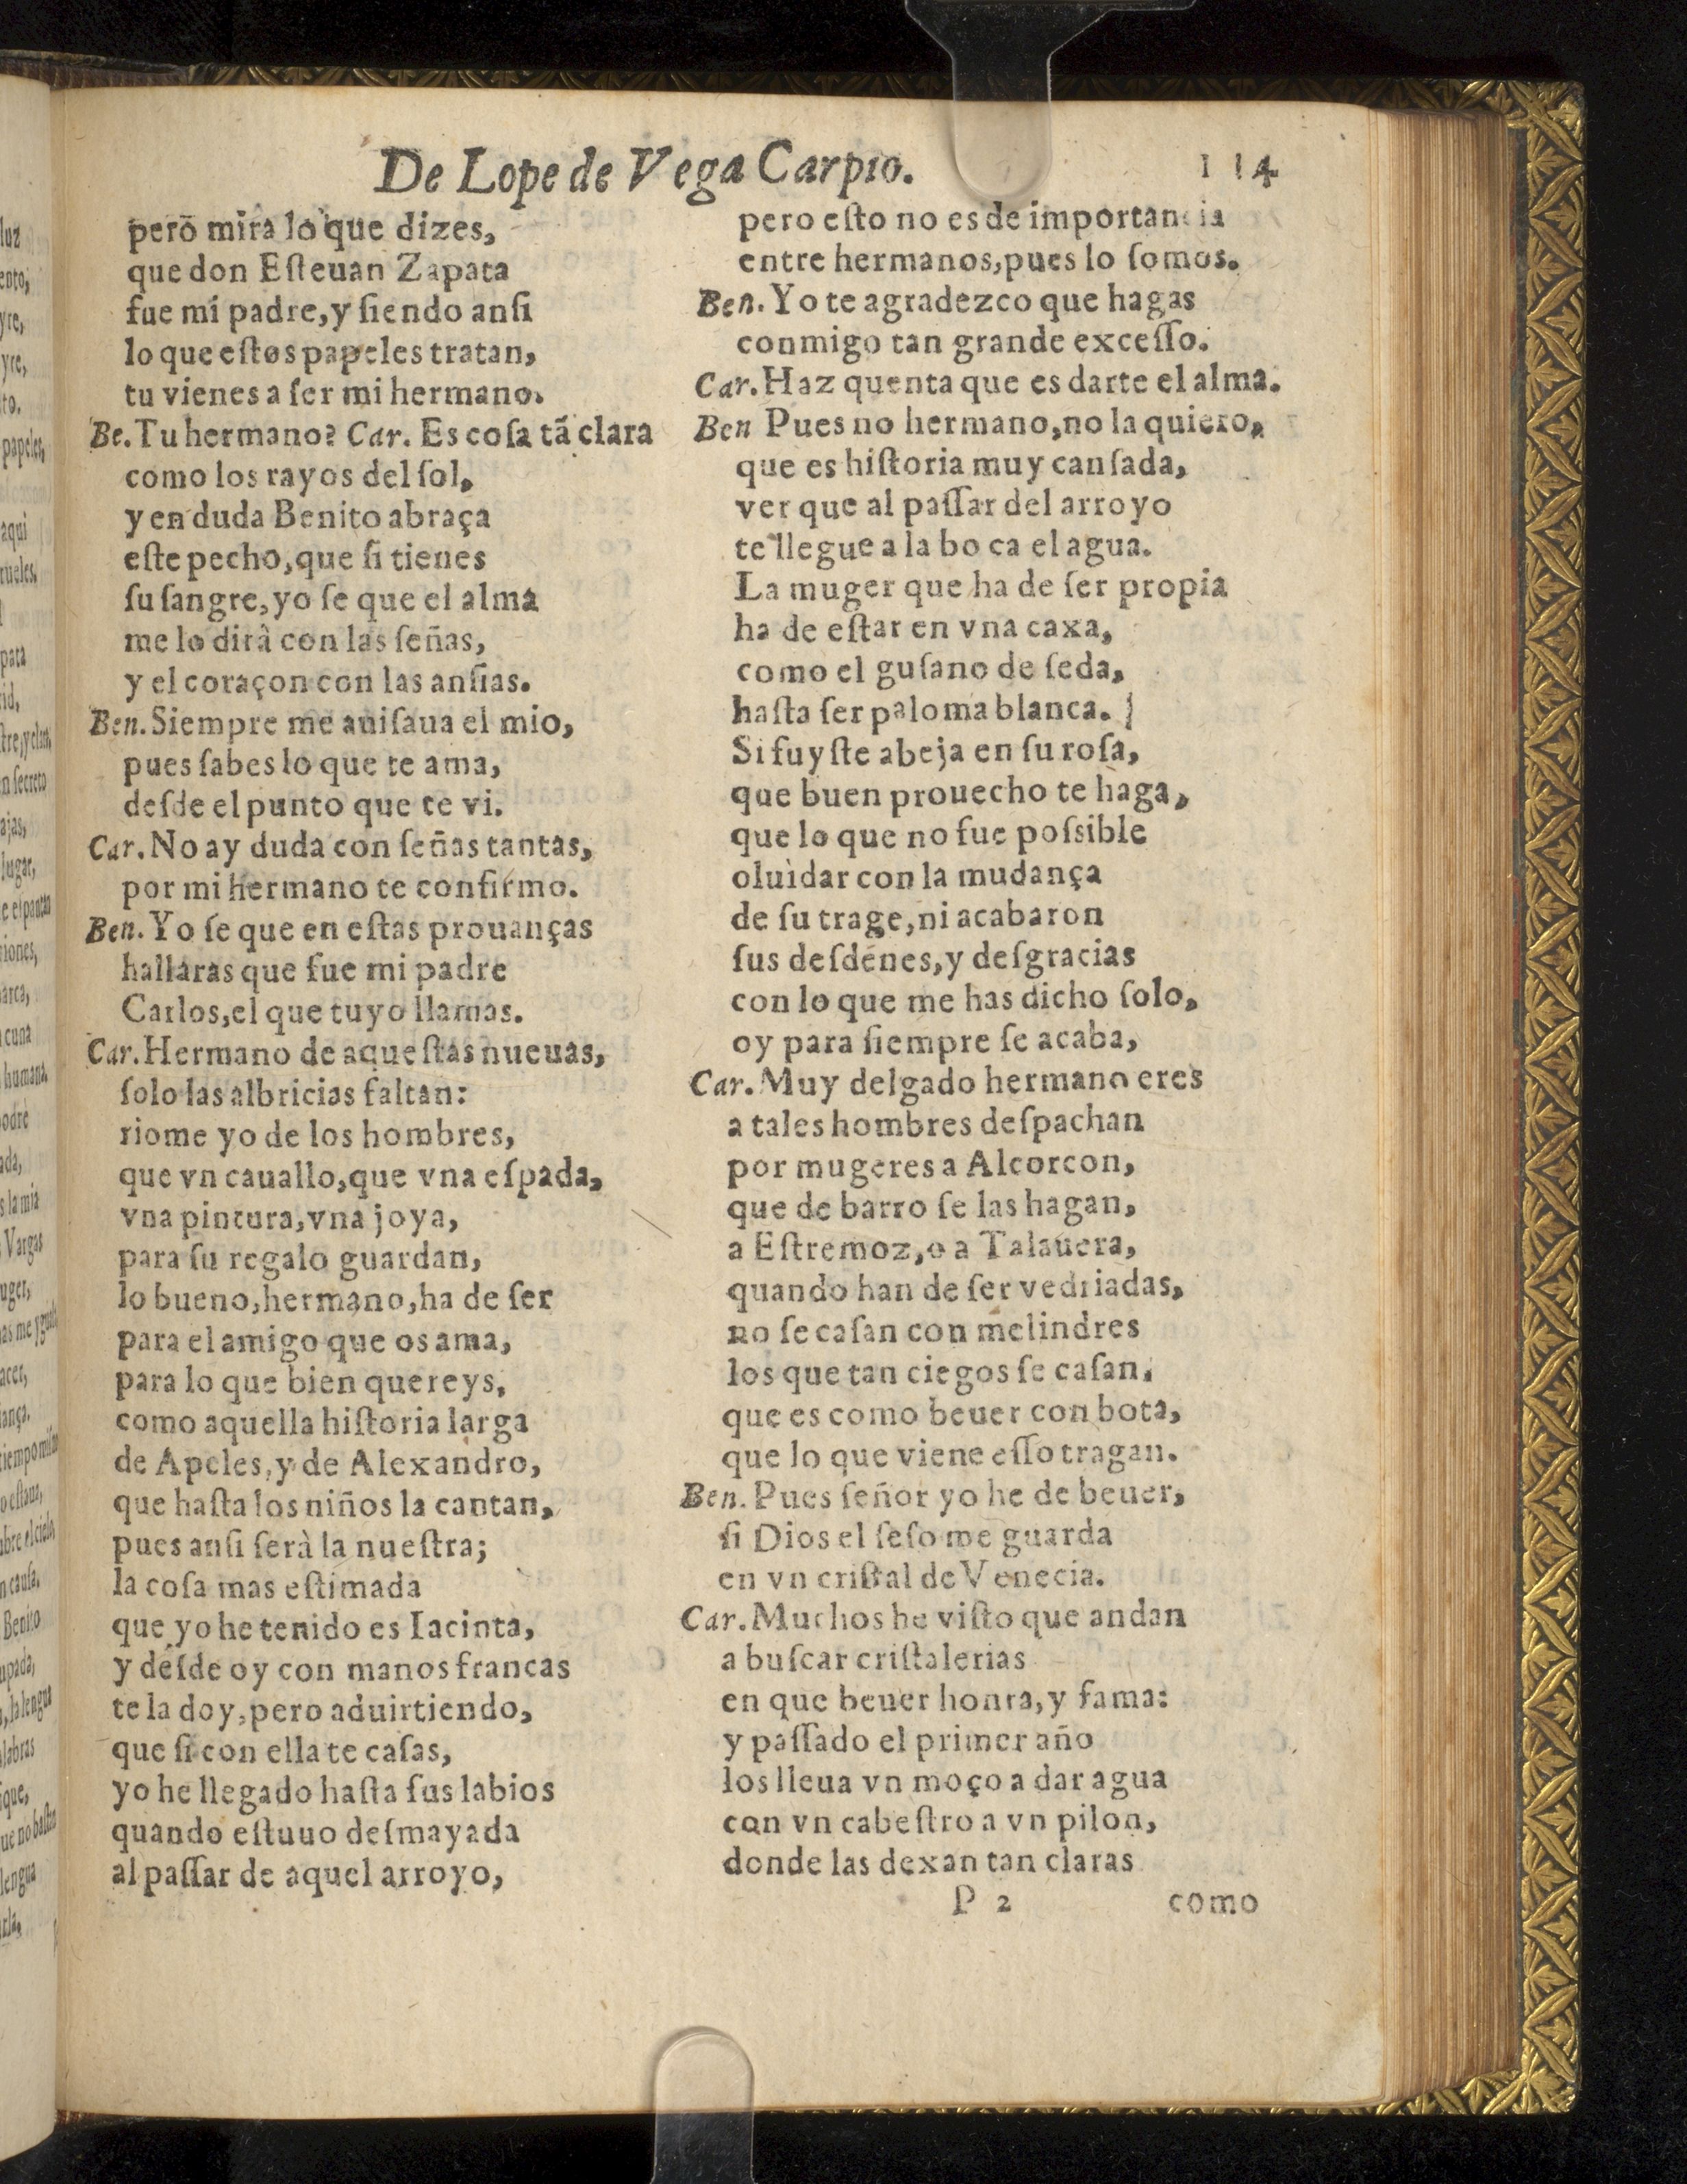 De Lope de Vega Carpio. 114
pero mira lo que dizes,
que don Eſteuan Zapata
fue mi padre, y ſiendo anſi
lo que eſtos papeles tratan,
tu vienes a ſer mi hermano.
Be. Tu hermano? Car. Es coſa tã clara
como los rayos del ſol,
y en duda Benito abraça
eſte pecho, que ſi tienes
ſu ſangre, yo ſe que el alma
me lo dirà con las ſeñas,
y el coraçon con las anſias.
Ben. Siempre me auiſaua el mio,
pues ſabes lo que te ama,
deſde el punto que te vi.
Car. No ay duda con ſeñas tantas,
por mi hermano te confirmo.
Ben. Yo ſe que en eſtas prouanças
hallaras que fue mi padre
Carlos, el que tuyo llamas.
Car. Hermano de aqueſtas nueuas,
ſolo las albricias faltan:
riome yo de los hombres,
que vn cauallo, que vna eſpada,
vna pintura, vna joya,
para ſu regalo guardan,
lo bueno, hermano, ha de ſer
para el amigo que os ama,
para lo que bien quereys,
como aquella hiſtoria larga
de Apeles, y de Alexandro,
que haſta los niños la cantan,
pues anſi ſerà la nueſtra;
la coſa mas eſtimada
que yo he tenido es Iacinta,
y deſde oy con manos francas
te la doy, pero aduirtiendo,
que ſi con ella te caſas,
yo he llegado haſta ſus labios
quando eſtuuo deſmayada
al paſſar de aquel arroyo,
pero eſto no es de importancia
entre hermanos, pues lo ſomos.
Ben. Yo te agradezco que hagas
conmigo tan grande exceſſo.
Car. Haz quenta que es darte el alma.
Ben Pues no hermano, no la quiero,
que es hiſtoria muy canſada,
ver que al paſſar del arroyo
te llegue a la bo ca el agua.
La muger que ha de ſer propia
ha de eſtar en vna caxa,
como el guſano de ſeda,
haſta ſer paloma blanca.
Si fuyſte abeja en ſu roſa,
que buen prouecho te haga,
que lo que no fue poſsible
oluidar con la mudança
de ſu trage, ni acabaron
ſus deſdenes, y deſgracias
con lo que me has dicho ſolo,
oy para ſiempre ſe acaba,
Car. Muy delgado hermano eres
a tales hombres deſpachan
por mugeres a Alcorcon,
que de barro ſe las hagan,
a Eſtremoz, o a Talauera,
quando han de ſer vedriadas,
no ſe caſan con melindres
los que tan ciegos ſe caſan,
que es como beuer con bota,
que lo que viene eſſo tragan.
Ben. Pues ſeñor yo he de beuer,
ſi Dios el ſeſo me guarda
en vn criſtal de Venecia.
Car. Muchos he viſto que andan
a buſcar criſtalerias
en que beuer honra, y fama:
y paſſado el primer año
los lleua vn moço a dar agua
con vn cabeſtro a vn pilon,
donde las dexan tan claras
P 2 como